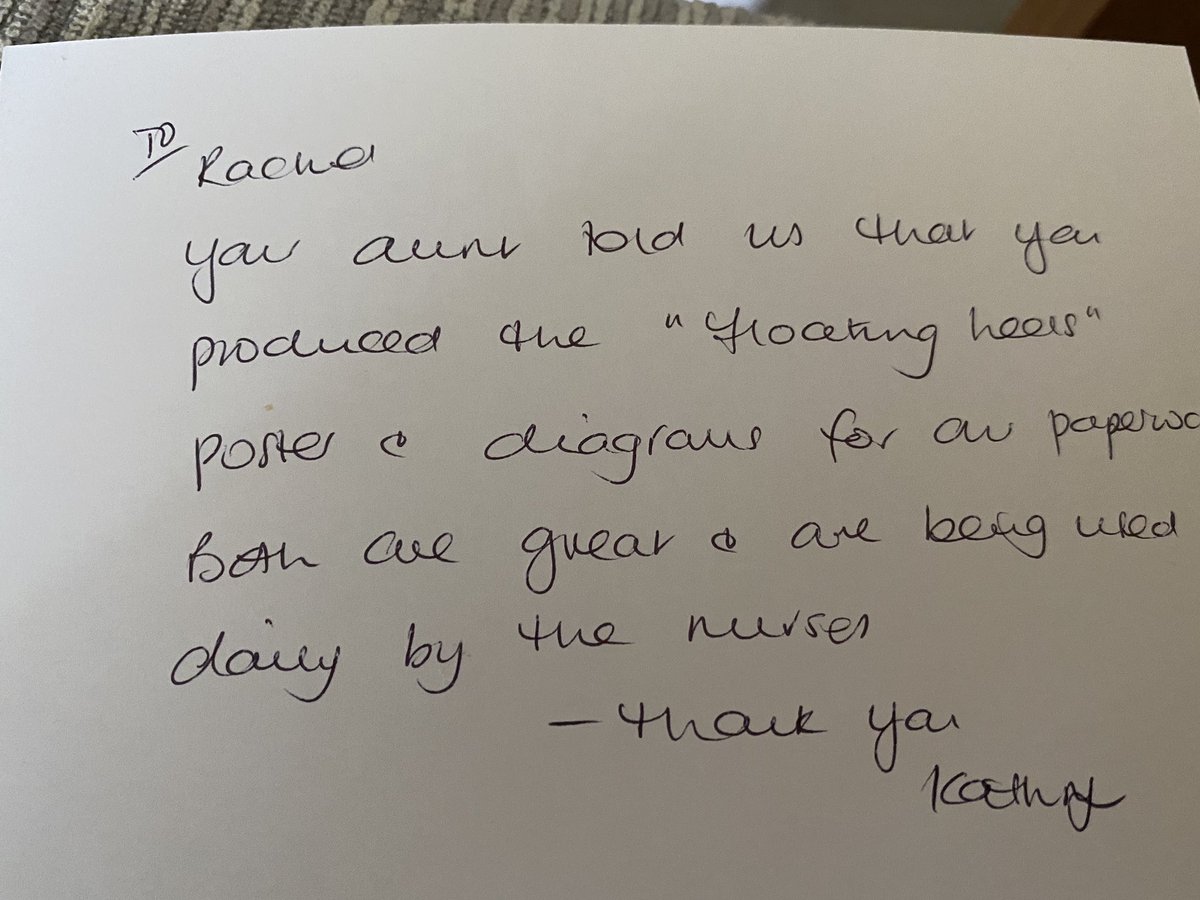 To Rachel
your aunt told us that you
produced the "floating heels"
poster & diagrams for our paperwo
Both are great & are being used
daily by the nurses
– thank you